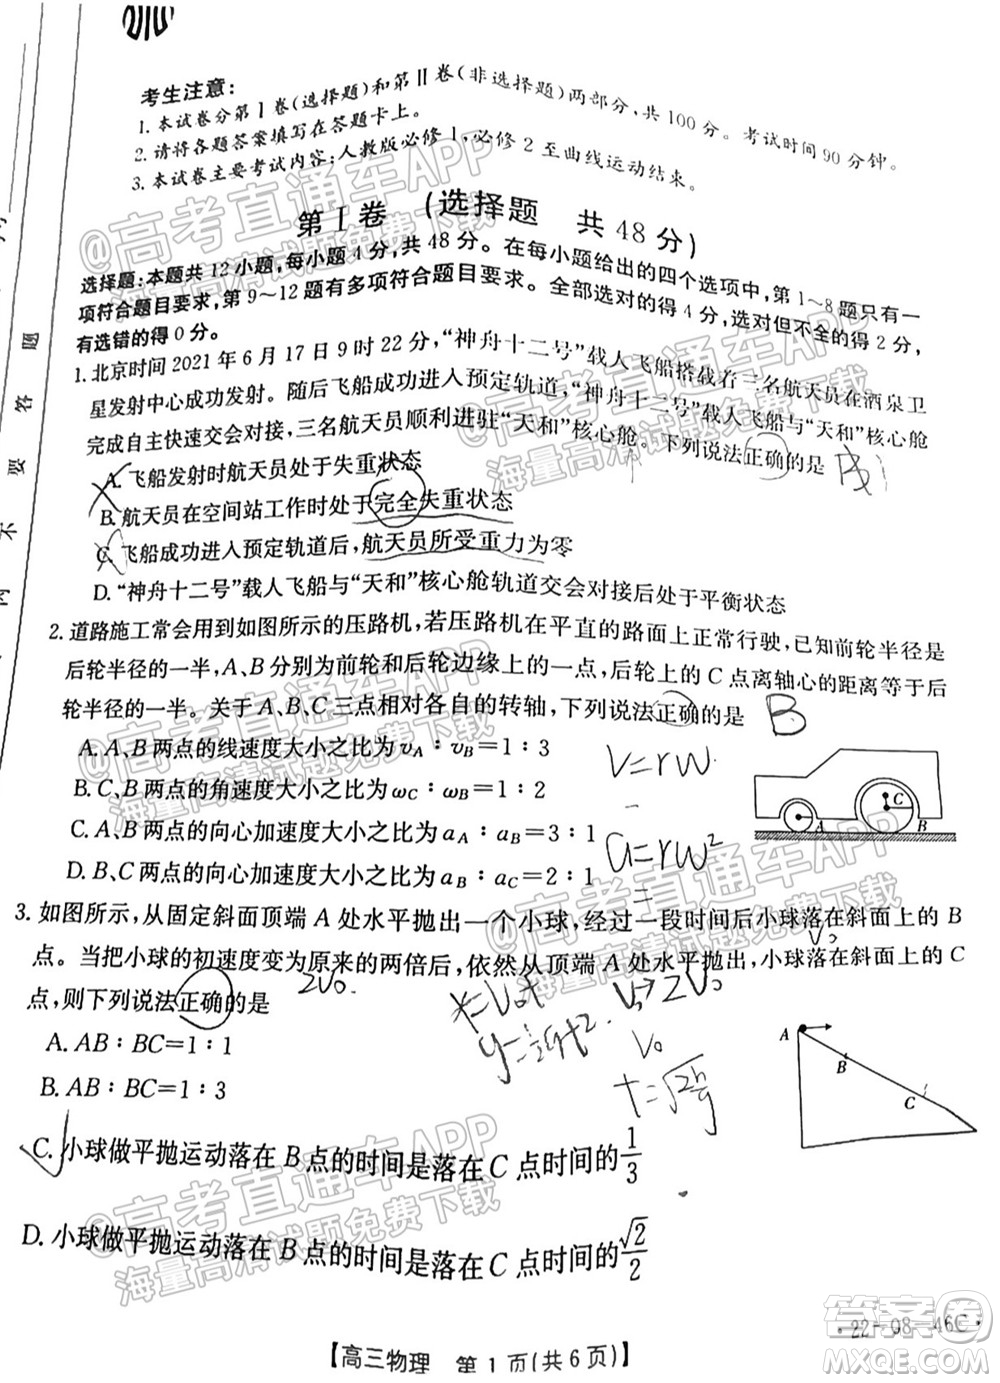 考生注意:
1. 本试卷分第Ⅰ卷(选择题)和第Ⅱ卷(非选择题)两部分,共100分。考试时间90分钟。
2. 请将各题答案填写在答题卡上。
3. 本试卷主要考试内容:人教版必修1,必修2至曲线运动结束。
第Ⅰ卷 (选择题 共48分)
选择题:本题共12小题,每小题4分,共48分。在每小题给出的四个选项中,第1~8题只有一
项符合题目要求,第9~12题有多项符合题目要求。全部选对的得4分,选对但不全的得2分,
有选错的得0分。
1. 北京时间2021年6月17日9时22分,“神舟十二号”载人飞船搭载着三名航天员在酒泉卫
星发射中心成功发射。随后飞船成功进入预定轨道,“神舟十二号”载人飞船与“天和”核心舱
完成自主快速交会对接,三名航天员顺利进驻“天和”核心舱。下列说法正确的是 B
A. 飞船发射时航天员处于失重状态
B. 航天员在空间站工作时处于完全失重状态
C. 飞船成功进入预定轨道后,航天员所受重力为零
D. “神舟十二号”载人飞船与“天和”核心舱轨道交会对接处于平衡状态
2. 道路施工常会用到如图所示的压路机,若压路机在平直的路面上正常行驶,已知前轮半径是
后轮半径的一半,A、B分别为前轮和后轮边缘上的一点,后轮上的C点离轴心的距离等于后
轮半径的一半。关于A、B、C三点相对各自的转轴,下列说法正确的是 B
A. A、B两点的线速度大小之比为vA∶vB=1∶3
B. C、B两点的角速度大小之比为ωC∶ωB=1∶2
C. A、B两点的向心加速度大小之比为aA∶aB=3∶1
D. B、C两点的向心加速度大小之比为aB∶aC=2∶1
V=rω
a=rω²
A
C
B
3. 如图所示,从固定斜面顶端A处水平抛出一个小球,经过一段时间后小球落在斜面上的B
点。当将小球的初速度变为原来的两倍后,依然从顶端A处水平抛出,小球落在斜面上的C
点,则下列说法正确的是
A. AB∶BC=1∶1
B. AB∶BC=1∶3
C. 小球做平抛运动落在B点的时间是落在C点时间的1/3
D. 小球做平抛运动落在B点的时间是落在C点时间的√2/2
2V₀
x=V₀t
y=½gt²
V₀
t=√(2h/g)
A
B
C
【高三物理 第1页(共6页)】
·22-08-46C·
答
题
要
不
@高考直通车APP
海量高清试题免费下载
@高考直通车APP
海量高清试题免费下载
@高考直通车APP
海量高清试题免费下载
@高考直通车APP
海量高清试题免费下载
@高考直通车APP
海量高清试题免费下载
答案圈
MXQE.COM